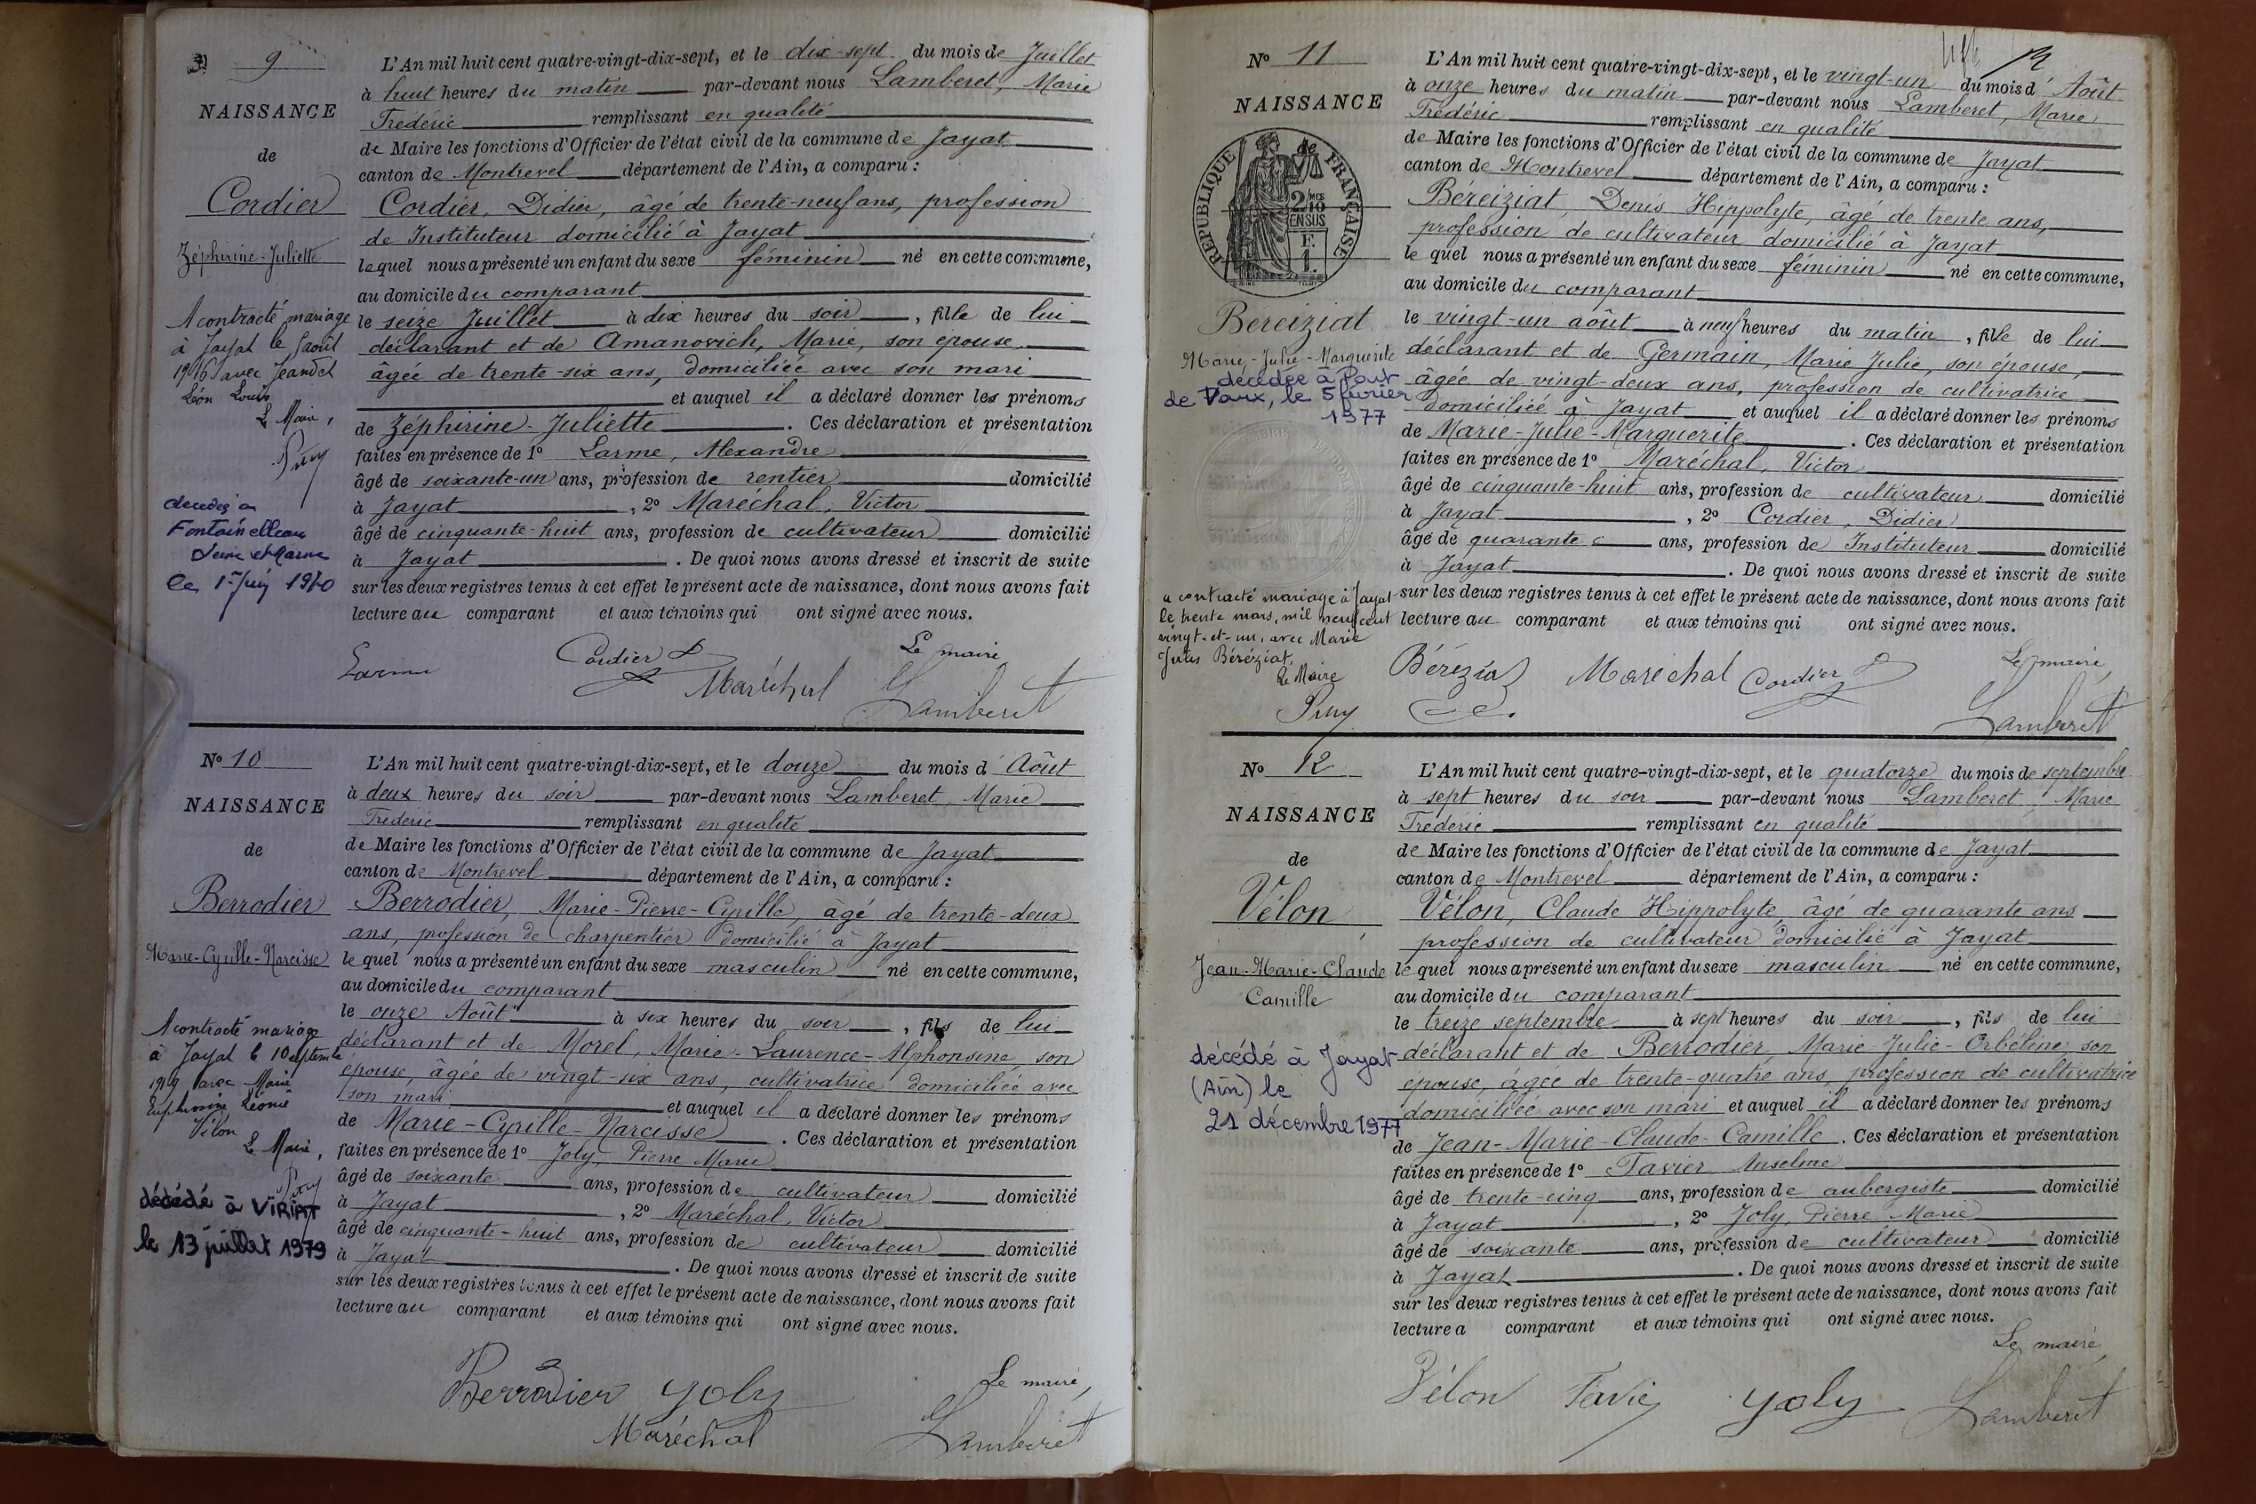 9
NAISSANCE
de
Cordier
Zéphirine-Juliette
A contracté mariage
à Jayat le août
avec Jeandet
Léon Louis
Le Maire,
Fontainebleau
Seine et Marne
le 1er Juin
L'An mil huit cent quatre-vingt-dix-sept, et le dix-sept du mois de Juillet
à huit heures du matin par-devant nous Lamberet, Marie
Frédéric remplissant en qualité
de Maire les fonctions d'Officier de l'état civil de la commune de Jayat
canton de Montrevel département de l'Ain, a comparu :
Cordier, Didier, âgé de trente-neuf ans, profession
de Instituteur domicilié à Jayat
lequel nous a présenté un enfant du sexe féminin né en cette commune,
au domicile du comparant
le seize Juillet à dix heures du soir, fille de lui
déclarant et de Amanovich, Marie, son épouse
âgée de trente-six ans, domiciliée avec son mari
et auquel il a déclaré donner les prénoms
de Zéphirine-Juliette. Ces déclaration et présentation
faites en présence de 1º Larme, Alexandre
âgé de soixante-un ans, profession de rentier domicilié
à Jayat, 2º Maréchal, Victor
âgé de cinquante-huit ans, profession de cultivateur domicilié
à Jayat. De quoi nous avons dressé et inscrit de suite
sur les deux registres tenus à cet effet le présent acte de naissance, dont nous avons fait
lecture au comparant et aux témoins qui ont signé avec nous.
Larme Cordier D Maréchal Le maire
Lamberet
Nº 10
NAISSANCE
de
Berrodier
Marie-Cyrille-Narcisse
A contracté mariage
à Jayat le 10 septembre
1919 avec Marie
Euphrosine Léonie
Vélon
Le Maire,
décédé à VIRIAT
le 13 juillet 1979
L'An mil huit cent quatre-vingt-dix-sept, et le douze du mois d'Août
à deux heures du soir par-devant nous Lamberet, Marie
Frédéric remplissant en qualité
de Maire les fonctions d'Officier de l'état civil de la commune de Jayat
canton de Montrevel département de l'Ain, a comparu :
Berrodier, Marie-Pierre-Cyrille, âgé de trente-deux
ans, profession de charpentier domicilié à Jayat
lequel nous a présenté un enfant du sexe masculin né en cette commune,
au domicile du comparant
le onze Août à six heures du soir, fils de lui
déclarant et de Morel, Marie-Laurence-Alphonsine, son
épouse, âgée de vingt-six ans, cultivatrice domiciliée avec
son mari et auquel il a déclaré donner les prénoms
de Marie-Cyrille-Narcisse. Ces déclaration et présentation
faites en présence de 1º Joly, Pierre Marie
âgé de soixante ans, profession de cultivateur domicilié
à Jayat, 2º Maréchal, Victor
âgé de cinquante-huit ans, profession de cultivateur domicilié
à Jayat. De quoi nous avons dressé et inscrit de suite
sur les deux registres tenus à cet effet le présent acte de naissance, dont nous avons fait
lecture au comparant et aux témoins qui ont signé avec nous.
Berrodier Joly Le maire,
Maréchal Lamberet
Nº 11
NAISSANCE
de
RÉPUBLIQUE FRANÇAISE
2/10 MES
EN SUS
F.
1.
Bereiziat
Marie-Julie-Marguerite
décédée à Pont
de Vaux, le 5 février
1977
a contracté mariage à Jayat
le trente mars, mil neuf cent
vingt-et-un, avec Marie
Jules Béréziat.
Le Maire
L'An mil huit cent quatre-vingt-dix-sept, et le vingt-un du mois d'Août
à onze heures du matin par-devant nous Lamberet, Marie
Frédéric remplissant en qualité
de Maire les fonctions d'Officier de l'état civil de la commune de Jayat
canton de Montrevel département de l'Ain, a comparu :
Béreiziat, Denis Hippolyte, âgé de trente ans,
profession de cultivateur domicilié à Jayat
lequel nous a présenté un enfant du sexe féminin né en cette commune,
au domicile du comparant
le vingt-un août à neuf heures du matin, fille de lui
déclarant et de Germain, Marie Julie, son épouse,
âgée de vingt-deux ans, profession de cultivatrice
domiciliée à Jayat et auquel il a déclaré donner les prénoms
de Marie-Julie-Marguerite. Ces déclaration et présentation
faites en présence de 1º Maréchal, Victor
âgé de cinquante-huit ans, profession de cultivateur domicilié
à Jayat, 2º Cordier, Didier
âgé de quarante ans, profession de Instituteur domicilié
à Jayat. De quoi nous avons dressé et inscrit de suite
sur les deux registres tenus à cet effet le présent acte de naissance, dont nous avons fait
lecture au comparant et aux témoins qui ont signé avec nous.
Maréchal Cordier D Le maire,
Lamberet
Nº 12
NAISSANCE
de
Vélon
Jean-Marie-Claude
Camille
décédé à Jayat
(Ain) le
21 décembre 1977
L'An mil huit cent quatre-vingt-dix-sept, et le quatorze du mois de septembre
à sept heures du soir par-devant nous Lamberet, Marie
Frédéric remplissant en qualité
de Maire les fonctions d'Officier de l'état civil de la commune de Jayat
canton de Montrevel département de l'Ain, a comparu :
Vélon, Claude Hippolyte, âgé de quarante ans
profession de cultivateur domicilié à Jayat
lequel nous a présenté un enfant du sexe masculin né en cette commune,
au domicile du comparant
le treize septembre à sept heures du soir, fils de lui
déclarant et de Berrodier, Marie-Julie-Orbéline son
épouse, âgée de trente-quatre ans, profession de cultivatrice
domiciliée avec son mari et auquel il a déclaré donner les prénoms
de Jean-Marie-Claude-Camille. Ces déclaration et présentation
faites en présence de 1º Favier Anselme
âgé de trente-cinq ans, profession de aubergiste domicilié
à Jayat, 2º Joly, Pierre Marie
âgé de soixante ans, profession de cultivateur domicilié
à Jayat. De quoi nous avons dressé et inscrit de suite
sur les deux registres tenus à cet effet le présent acte de naissance, dont nous avons fait
lecture a comparant et aux témoins qui ont signé avec nous.
Le maire,
Vélon Favie Joly Lamberet